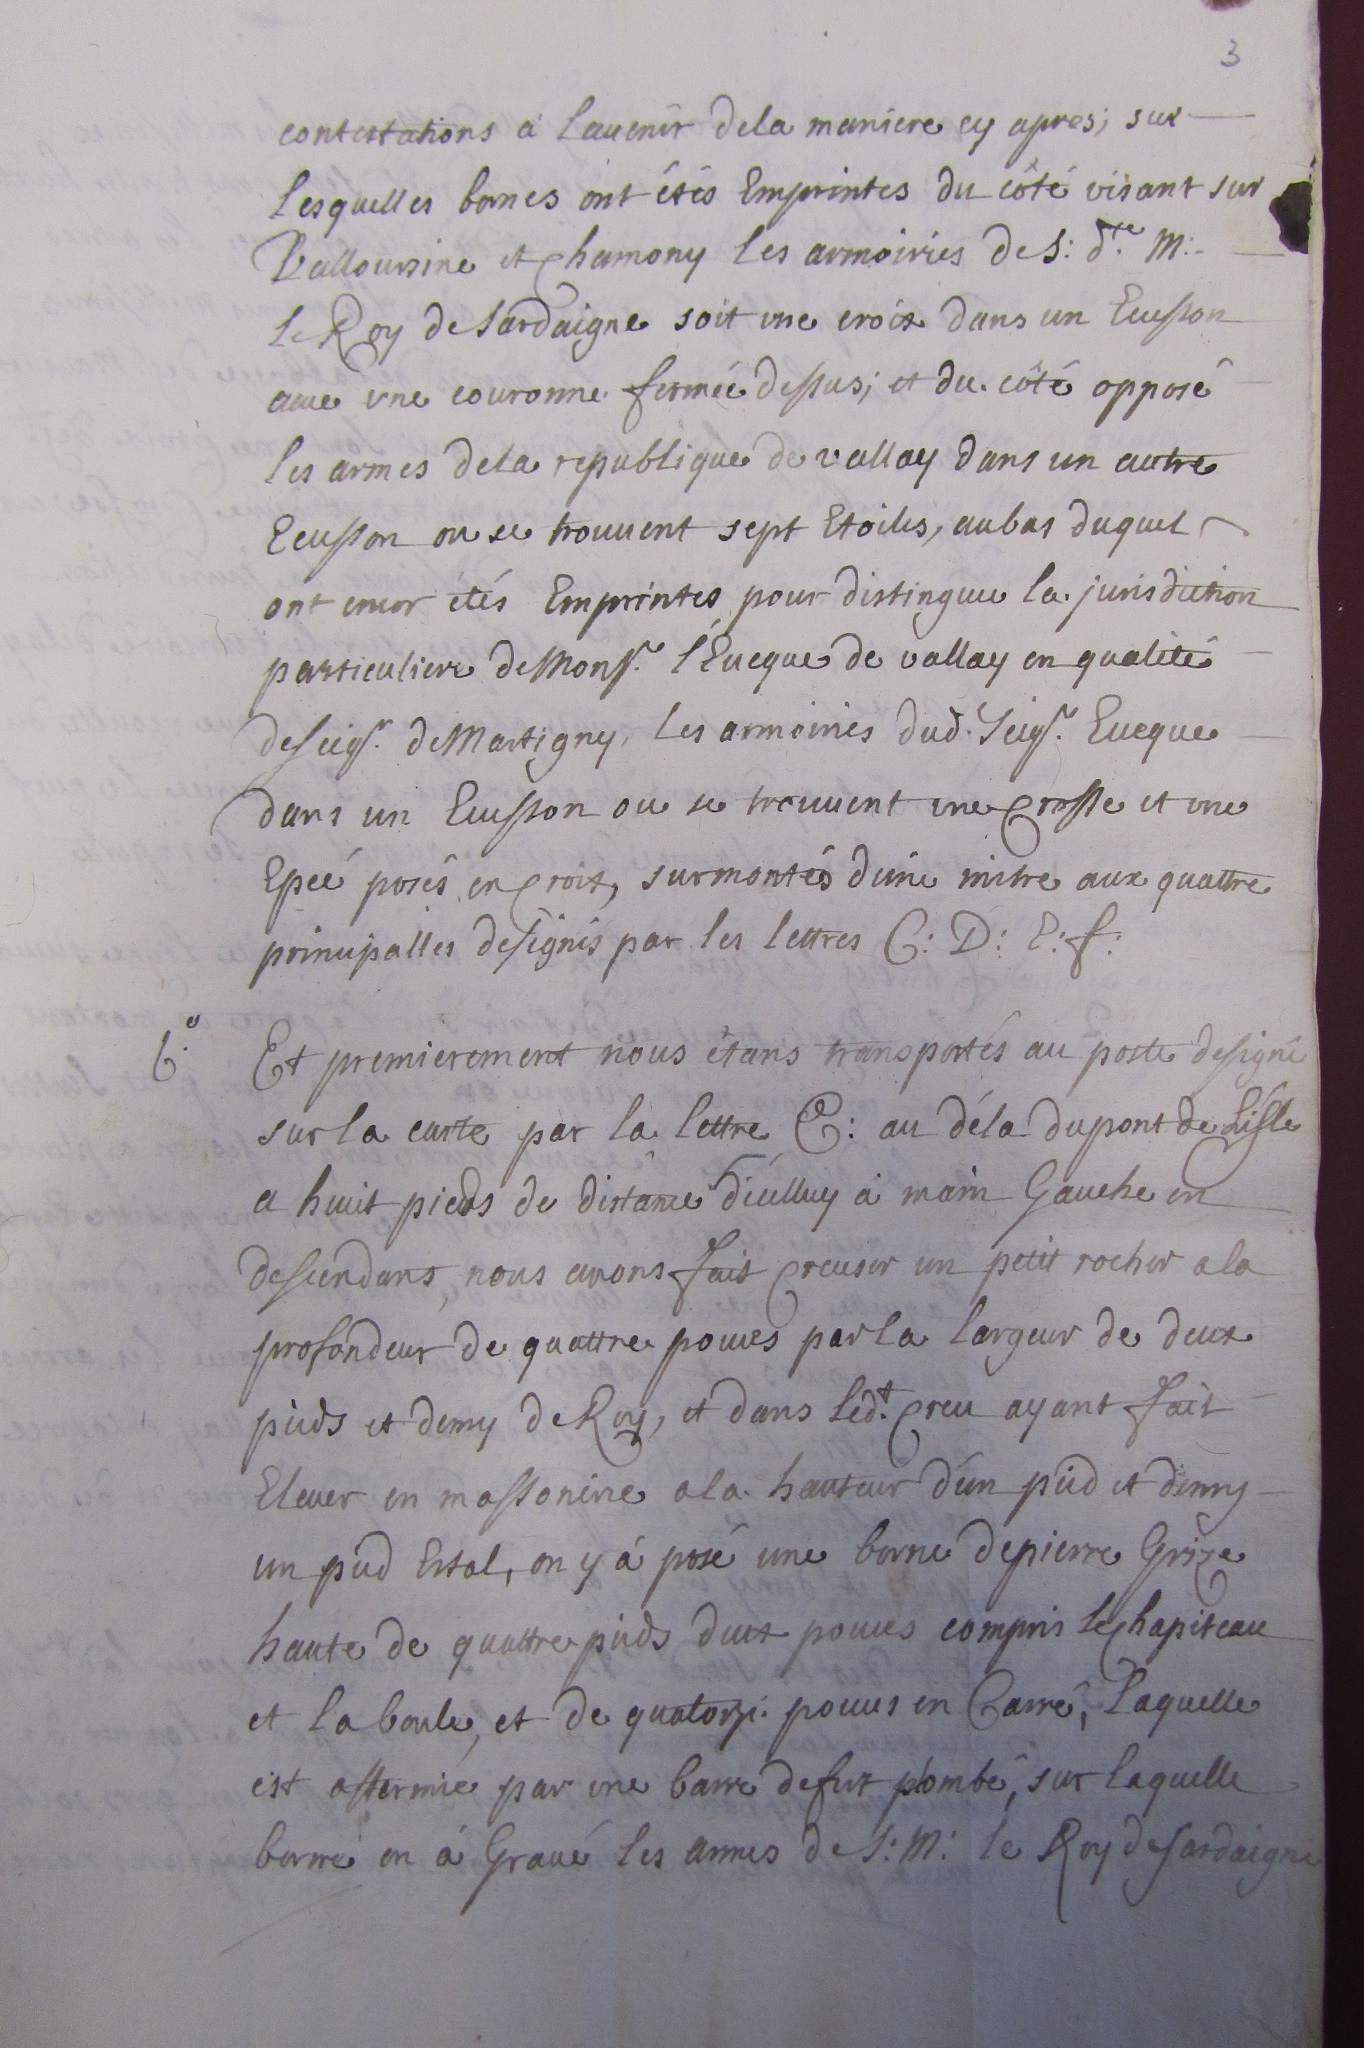 3
contestations a lauenir dela maniere cy apres; sur
lesquelles bornes ont étés Emprintes du côté visant sur
Vallourzine et Chamony les armoiries de S: d.te M:
le Roy de Sardaigne soit une croix dans un Ecusson
auec vne couronne fermée dessus; et du côté opposé
les armes dela republique de vallay dans un autre
Ecusson ou se trouuent sept Etoiles, aubas duquel
ont encor étés Emprintes pour distinguer la jurisdiction
particuliere de Mons.r l'Eueque de vallay en qualité
de seig.r de Martigny, les armoiries dud. Seig.r Eueque
dans un Ecusson ou se trouuent une Crosse et une
Epeé posés en Croix, surmontés d'une mitre aux quattre
principalles designés par les lettres C: D: E: f:
C.o
Et premierement nous étans transportés au poste designé
sur la carte par la lettre C: au déla du pont de Lisle
a huit pieds de distance d'icelluy á main Gauche en
descendans, nous auons fait Creuser un petit rocher ala
profondeur de quattre pouces par la largeur de deux
pieds et demy de Roy, et dans led.t Creu ayant fait
Eleuer en massonerie ala hauteur d'un pied et demy
un pied Estal, on y á posé une borne depierre Grize
haute de quattre pieds deux pouces compris le Chapiteau
et la boule, et de quatorze pouces en Carré, laquelle
est affermie par une barre defer plombé, sur laquelle
borne on á Graué les armes de S: M: le Roy de Sardaigne